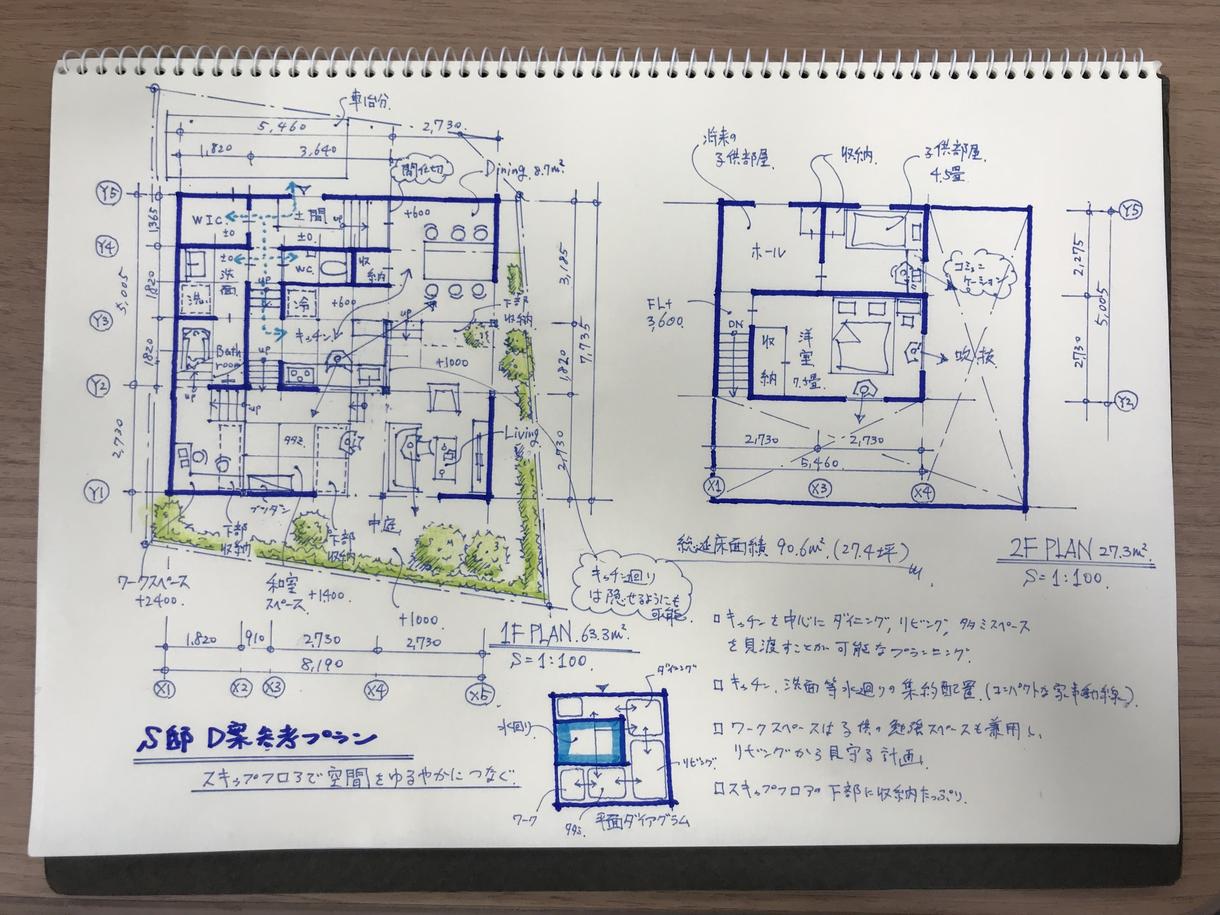 車1台分
5,460
2,730
1,820
3,640
間仕切
Dining 8.7m².
Y5
Y4
Y3
Y2
Y1
1,365
1,820
1,820
5,005
2,730
WIC
±0
土間
±0
UP
+600
±0
洗面
WC
収納
洗
冷
+600
キッチン
下部収納
+1000
Bath room
UP
UP
UP
タタミ
Living
3,185
1,820
7,735
2,730
中庭
下部収納
下部収納
ワークスペース
+2400.
和室スペース
+1400.
+1000
キッチン廻り
は隠せるようにも
可能.
1FPLAN.63.3m².
S=1:100.
1,820
910
2,730
2,730
8,190
X1
X2
X3
X4
X5
S邸 D案参考プラン
スキップフロアで空間をゆるやかにつなぐ.
水廻り
ダイニング
リビング
ワーク
タタミ
平面ダイアグラム
将来の
子供部屋.
収納.
子供部屋
4.5畳
ホール
コミュニケーション
FL+
3,600.
DN
収納
洋室
7.5畳
吹抜
Y5
2,275
5,005
2730
Y2
2,730
2,730
5,460
X1
X3
X4
総延床面積 90.6m².(27.4坪)
2F PLAN 27.3m².
S=1:100.
□キッチンを中心にダイニング,リビング,タタミスペース
を見渡すことが可能なプランニング.
□キッチン.洗面等水廻りの集約配置.(コンパクトな家事動線)
□ワークスペースは子供の勉強スペースも兼用し、
リビングから見守る計画.
□スキップフロアの下部に収納たっぷり.